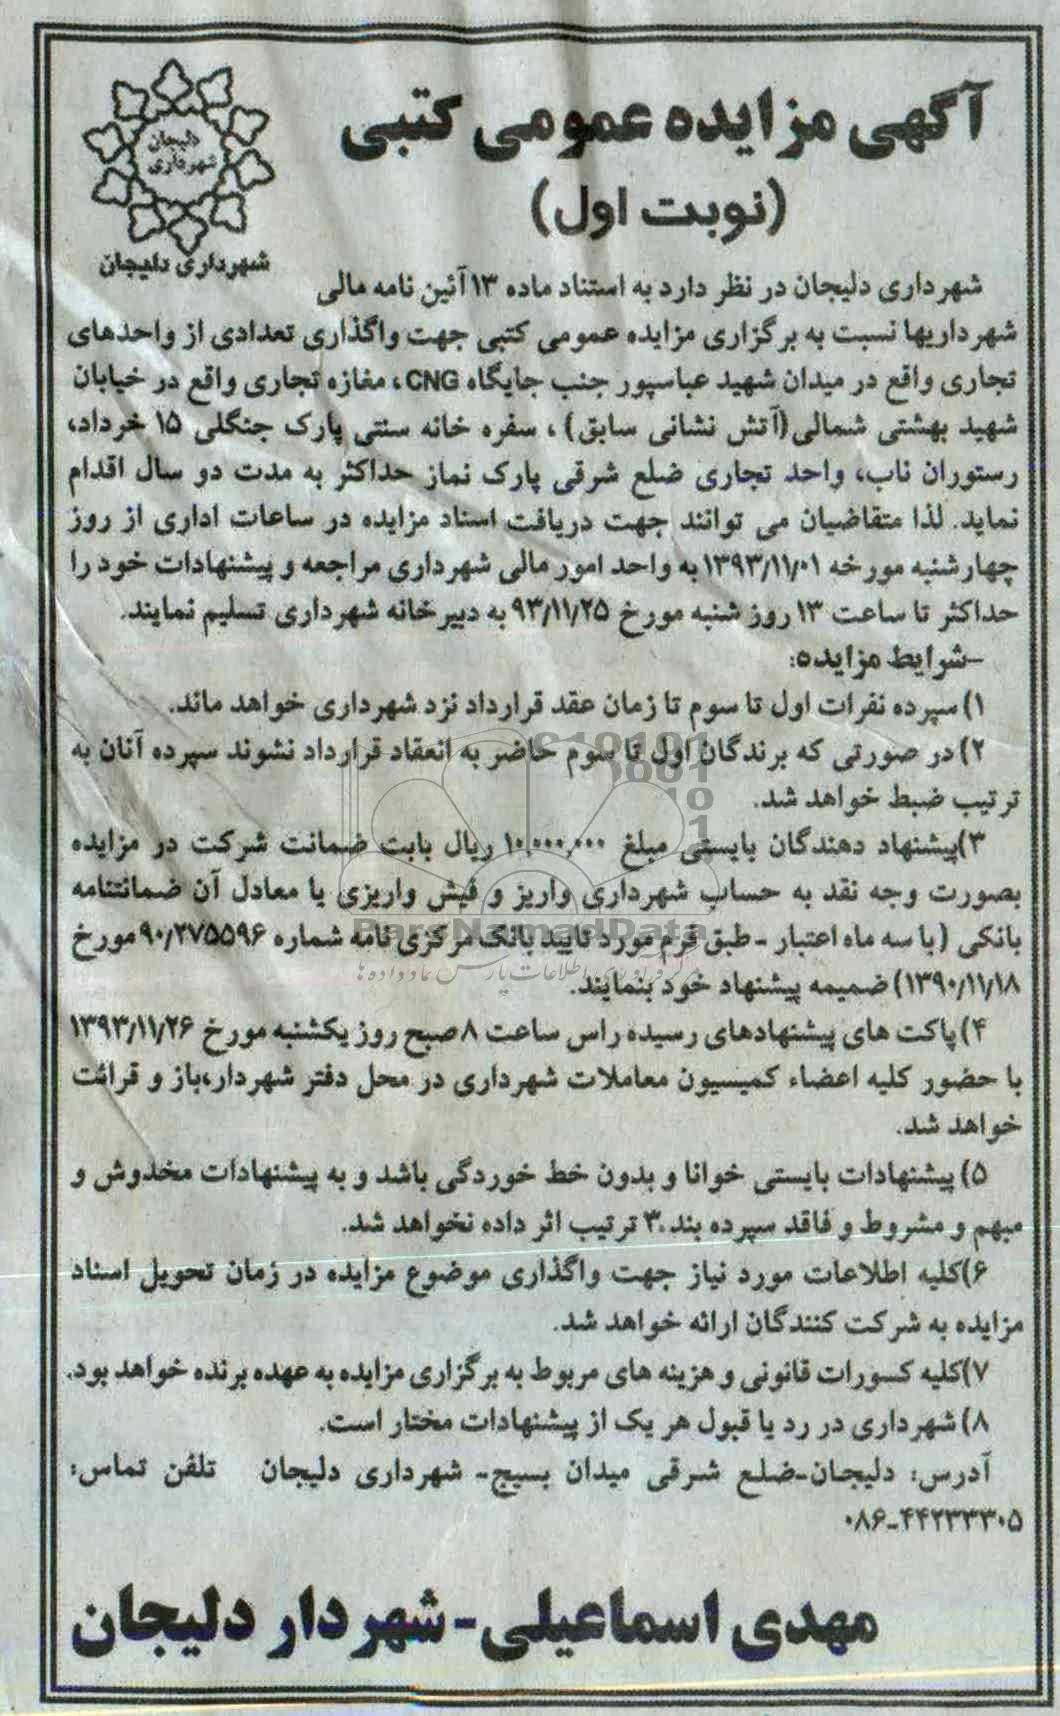 آگهی مزایده عمومی کتبی
(نوبت اول)
دلیجان
شهرداری
شهرداری دلیجان
شهرداری دلیجان در نظر دارد به استناد ماده ۱۳ آئین نامه مالی
شهرداریها نسبت به برگزاری مزایده عمومی کتبی جهت واگذاری تعدادی از واحدهای
تجاری واقع در میدان شهید عباسپور جنب جایگاه CNG، مغازه تجاری واقع در خیابان
شهید بهشتی شمالی(آتش نشانی سابق) ، سفره خانه سنتی پارک جنگلی ۱۵ خرداد،
رستوران ناب، واحد تجاری ضلع شرقی پارک نماز حداکثر به مدت دو سال اقدام
نماید. لذا متقاضیان می توانند جهت دریافت اسناد مزایده در ساعات اداری از روز
چهارشنبه مورخه ۱۳۹۳/۱۱/۰۱ به واحد امور مالی شهرداری مراجعه و پیشنهادات خود را
حداکثر تا ساعت ۱۳ روز شنبه مورخ ۹۳/۱۱/۲۵ به دبیرخانه شهرداری تسلیم نمایند.
-شرایط مزایده:
۱) سپرده نفرات اول تا سوم تا زمان عقد قرارداد نزد شهرداری خواهد ماند.
۲) در صورتی که برندگان اول تا سوم حاضر به انعقاد قرارداد نشوند سپرده آنان به
ترتیب ضبط خواهد شد.
۳)پیشنهاد دهندگان بایستی مبلغ ۱۰،۰۰۰،۰۰۰ ریال بابت ضمانت شرکت در مزایده
بصورت وجه نقد به حساب شهرداری واریز و فیش واریزی یا معادل آن ضمانتنامه
بانکی (با سه ماه اعتبار -طبق فرم مورد تایید بانک مرکزی نامه شماره ۹۰/۲۷۵۵۹۶ مورخ
۱۳۹۰/۱۱/۱۸) ضمیمه پیشنهاد خود بنمایند.
۴) پاکت های پیشنهادهای رسیده راس ساعت ۸ صبح روز یکشنبه مورخ ۱۳۹۳/۱۱/۲۶
با حضور کلیه اعضاء کمیسیون معاملات شهرداری در محل دفتر شهردار،باز و قرائت
خواهد شد.
۵) پیشنهادات بایستی خوانا و بدون خط خوردگی باشد و به پیشنهادات مخدوش و
مبهم و مشروط و فاقد سپرده بند۳ ترتیب اثر داده نخواهد شد.
۶)کلیه اطلاعات مورد نیاز جهت واگذاری موضوع مزایده در زمان تحویل اسناد
مزایده به شرکت کنندگان ارائه خواهد شد.
۷)کلیه کسورات قانونی و هزینه های مربوط به برگزاری مزایده به عهده برنده خواهد بود.
۸) شهرداری در رد یا قبول هر یک از پیشنهادات مختار است.
آدرس: دلیجان-ضلع شرقی میدان بسیج- شهرداری دلیجان تلفن تماس:
۰۸۶-۴۴۲۳۳۳۰۵
مهدی اسماعیلی-شهردار دلیجان
ParsNamadData